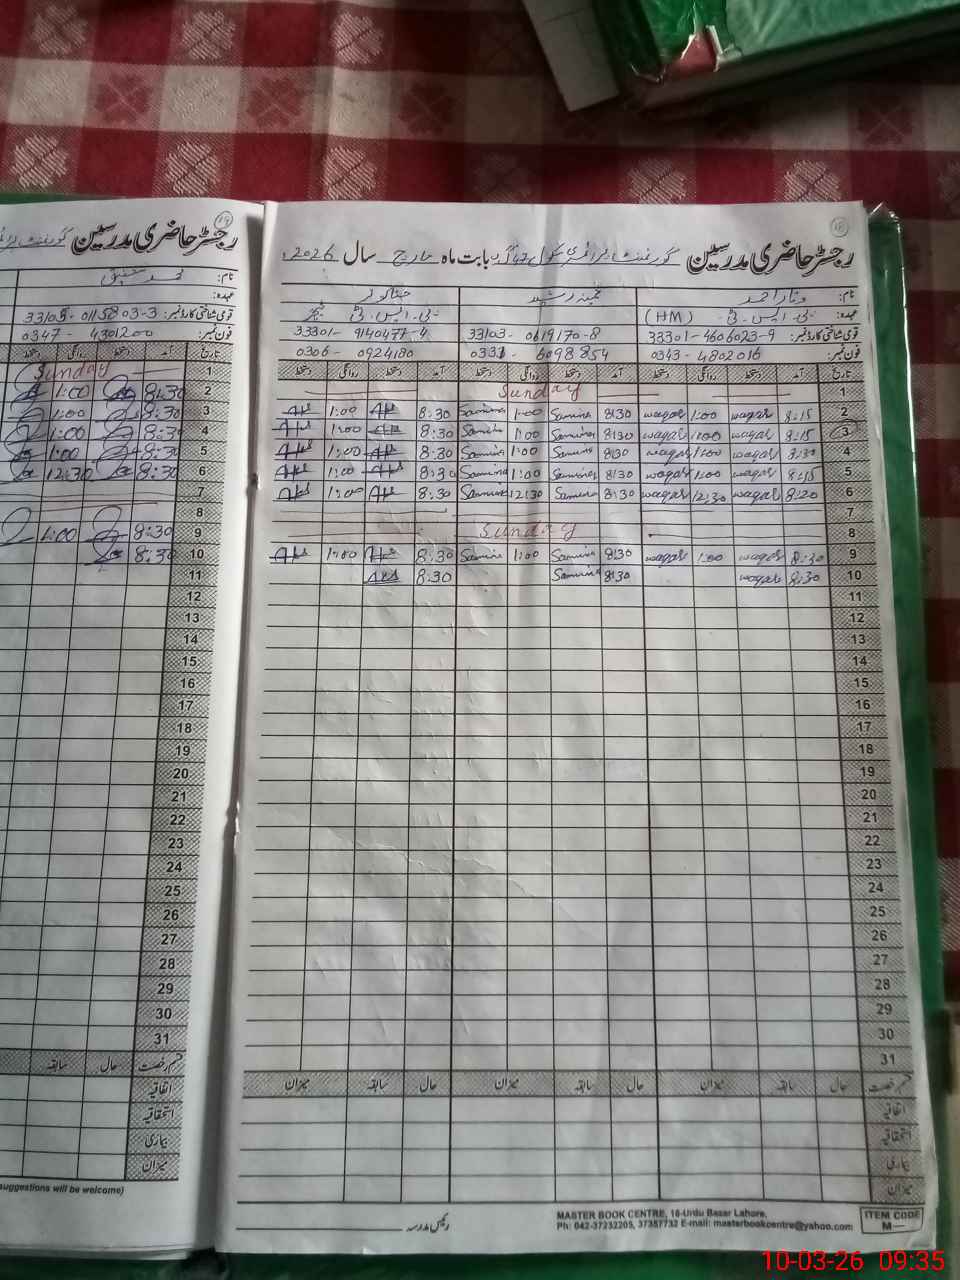 رجسٹر حاضری مدرسین گورنمنٹ پرائمری سکول بابت ماہ مارچ سال 2026ء
نام: وقار احمد ثمینہ رشید
عہدہ: پی۔ایس۔ٹی (HM) پی۔ایس۔ٹی
قومی شناختی کارڈ نمبر: 33301-4606023-9 33103-0619170-8 33301-9140477-4
فون نمبر: 0343-4802016 0331-6098854 0306-0924180
تاریخ آمد دستخط روانگی دستخط آمد دستخط روانگی دستخط آمد دستخط روانگی دستخط
1 Sunday
2 8:15 waqar 1:00 waqar 8:30 Samina 1:00 Samina 8:30 1:00
3 8:15 waqar 1:00 waqar 8:30 Samina 1:00 Samina 8:30 1:00
4 8:30 waqar 1:00 waqar 8:30 Samina 1:00 Samina 8:30 1:00
5 8:15 waqar 1:00 waqar 8:30 Samina 1:00 Samina 8:30 1:00
6 8:20 waqar 12:30 waqar 8:30 Samina 12:30 Samina 8:30 1:00
7
8 Sunday
9 8:30 waqar 1:00 waqar 8:30 Samina 1:00 Samina 8:30 1:00
10 8:30 waqar 8:30 Samina 8:30
11
12
13
14
15
16
17
18
19
20
21
22
23
24
25
26
27
28
29
30
31
قسم رخصت حال سابقہ میزان حال سابقہ میزان حال سابقہ میزان
اتفاقیہ
استحقاقیہ
بیماری
میزان
رئیس مدرسہ
MASTER BOOK CENTRE, 16-Urdu Bazar Lahore,
Ph: 042-37232205, 37357732 E-mail: masterbookcentre@yahoo.com
ITEM CODE
M—
رجسٹر حاضری مدرسین گورنمنٹ
نام: محمد
عہدہ:
قومی شناختی کارڈ نمبر: 33105-0115803-3
فون نمبر: 0347-4301200
تاریخ آمد دستخط روانگی دستخط
1 Sunday
2 8:30 1:00
3 8:30 1:00
4 8:30 1:00
5 8:30 1:00
6 8:30 12:30
7
8
9 8:30 1:00
10 8:30
11
12
13
14
15
16
17
18
19
20
21
22
23
24
25
26
27
28
29
30
31
قسم رخصت حال سابقہ
اتفاقیہ
استحقاقیہ
بیماری
میزان
suggestions will be welcome)
10-03-26 09:35